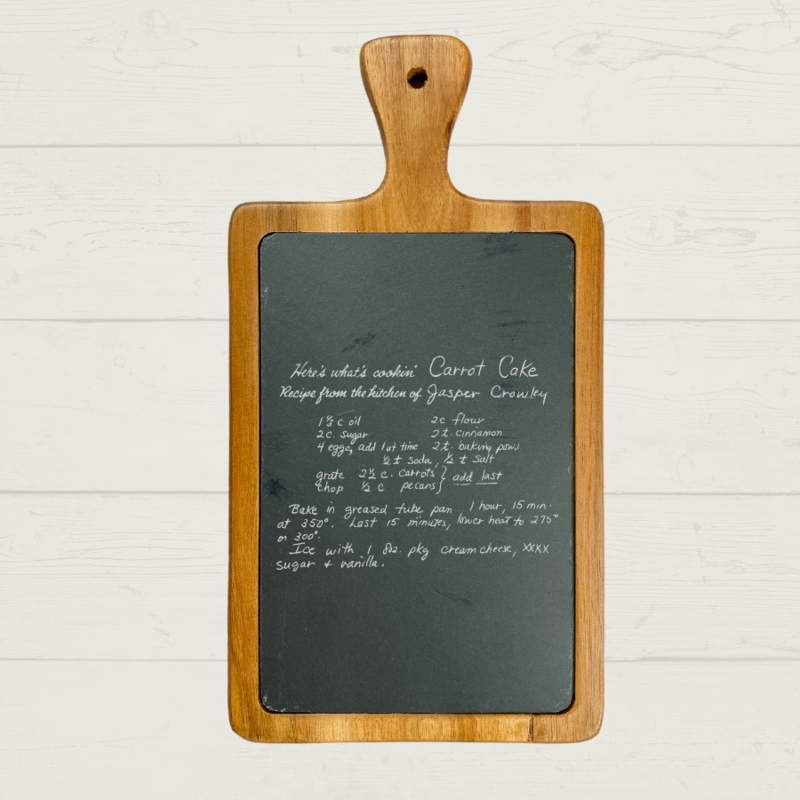 Here's what's cookin' Carrot Cake
Recipe from the kitchen of Jasper Crowley
1⅓ c oil 2c flour
2c. sugar 2t. cinnamon
4 eggs, add 1 at time 2t. baking powd
½ t soda, ½ t salt
grate 2½ c. carrots } add last
chop ½ c pecans
Bake in greased tube pan 1 hour, 15 min.
at 350°. Last 15 minutes, lower heat to 275°
or 300°.
Ice with 1 8oz. pkg cream cheese, xxxx
sugar + vanilla.